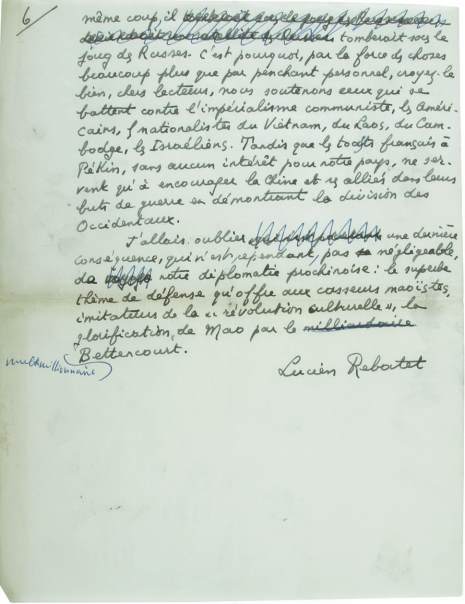 6
même coup, il tomberait sous le
joug des Russes. C'est pourquoi, par la force des choses
beaucoup plus que par penchant personnel, croyez-le
bien, chers lecteurs, nous soutenons ceux qui se
battent contre l'impérialisme communiste, les Améri-
cains, les nationalistes du Viêtnam, du Laos, du Cam-
bodge, les Israéliens. Tandis que les toasts français à
Pékin, sans aucun intérêt pour notre pays, ne ser-
vent qu'à encourager la Chine et ses alliés dans leurs
buts de guerre en démontrant la division des
Occidentaux.
J'allais oublier une dernière
conséquence, qui n'est, cependant, pas négligeable,
de notre diplomatie prochinoise : le superbe
thème de défense qu'offre aux casseurs maoïstes,
imitateurs de la « révolution culturelle », la
glorification de Mao par le milliardaire
Bettencourt.
multimillionnaire
Lucien Rebatet